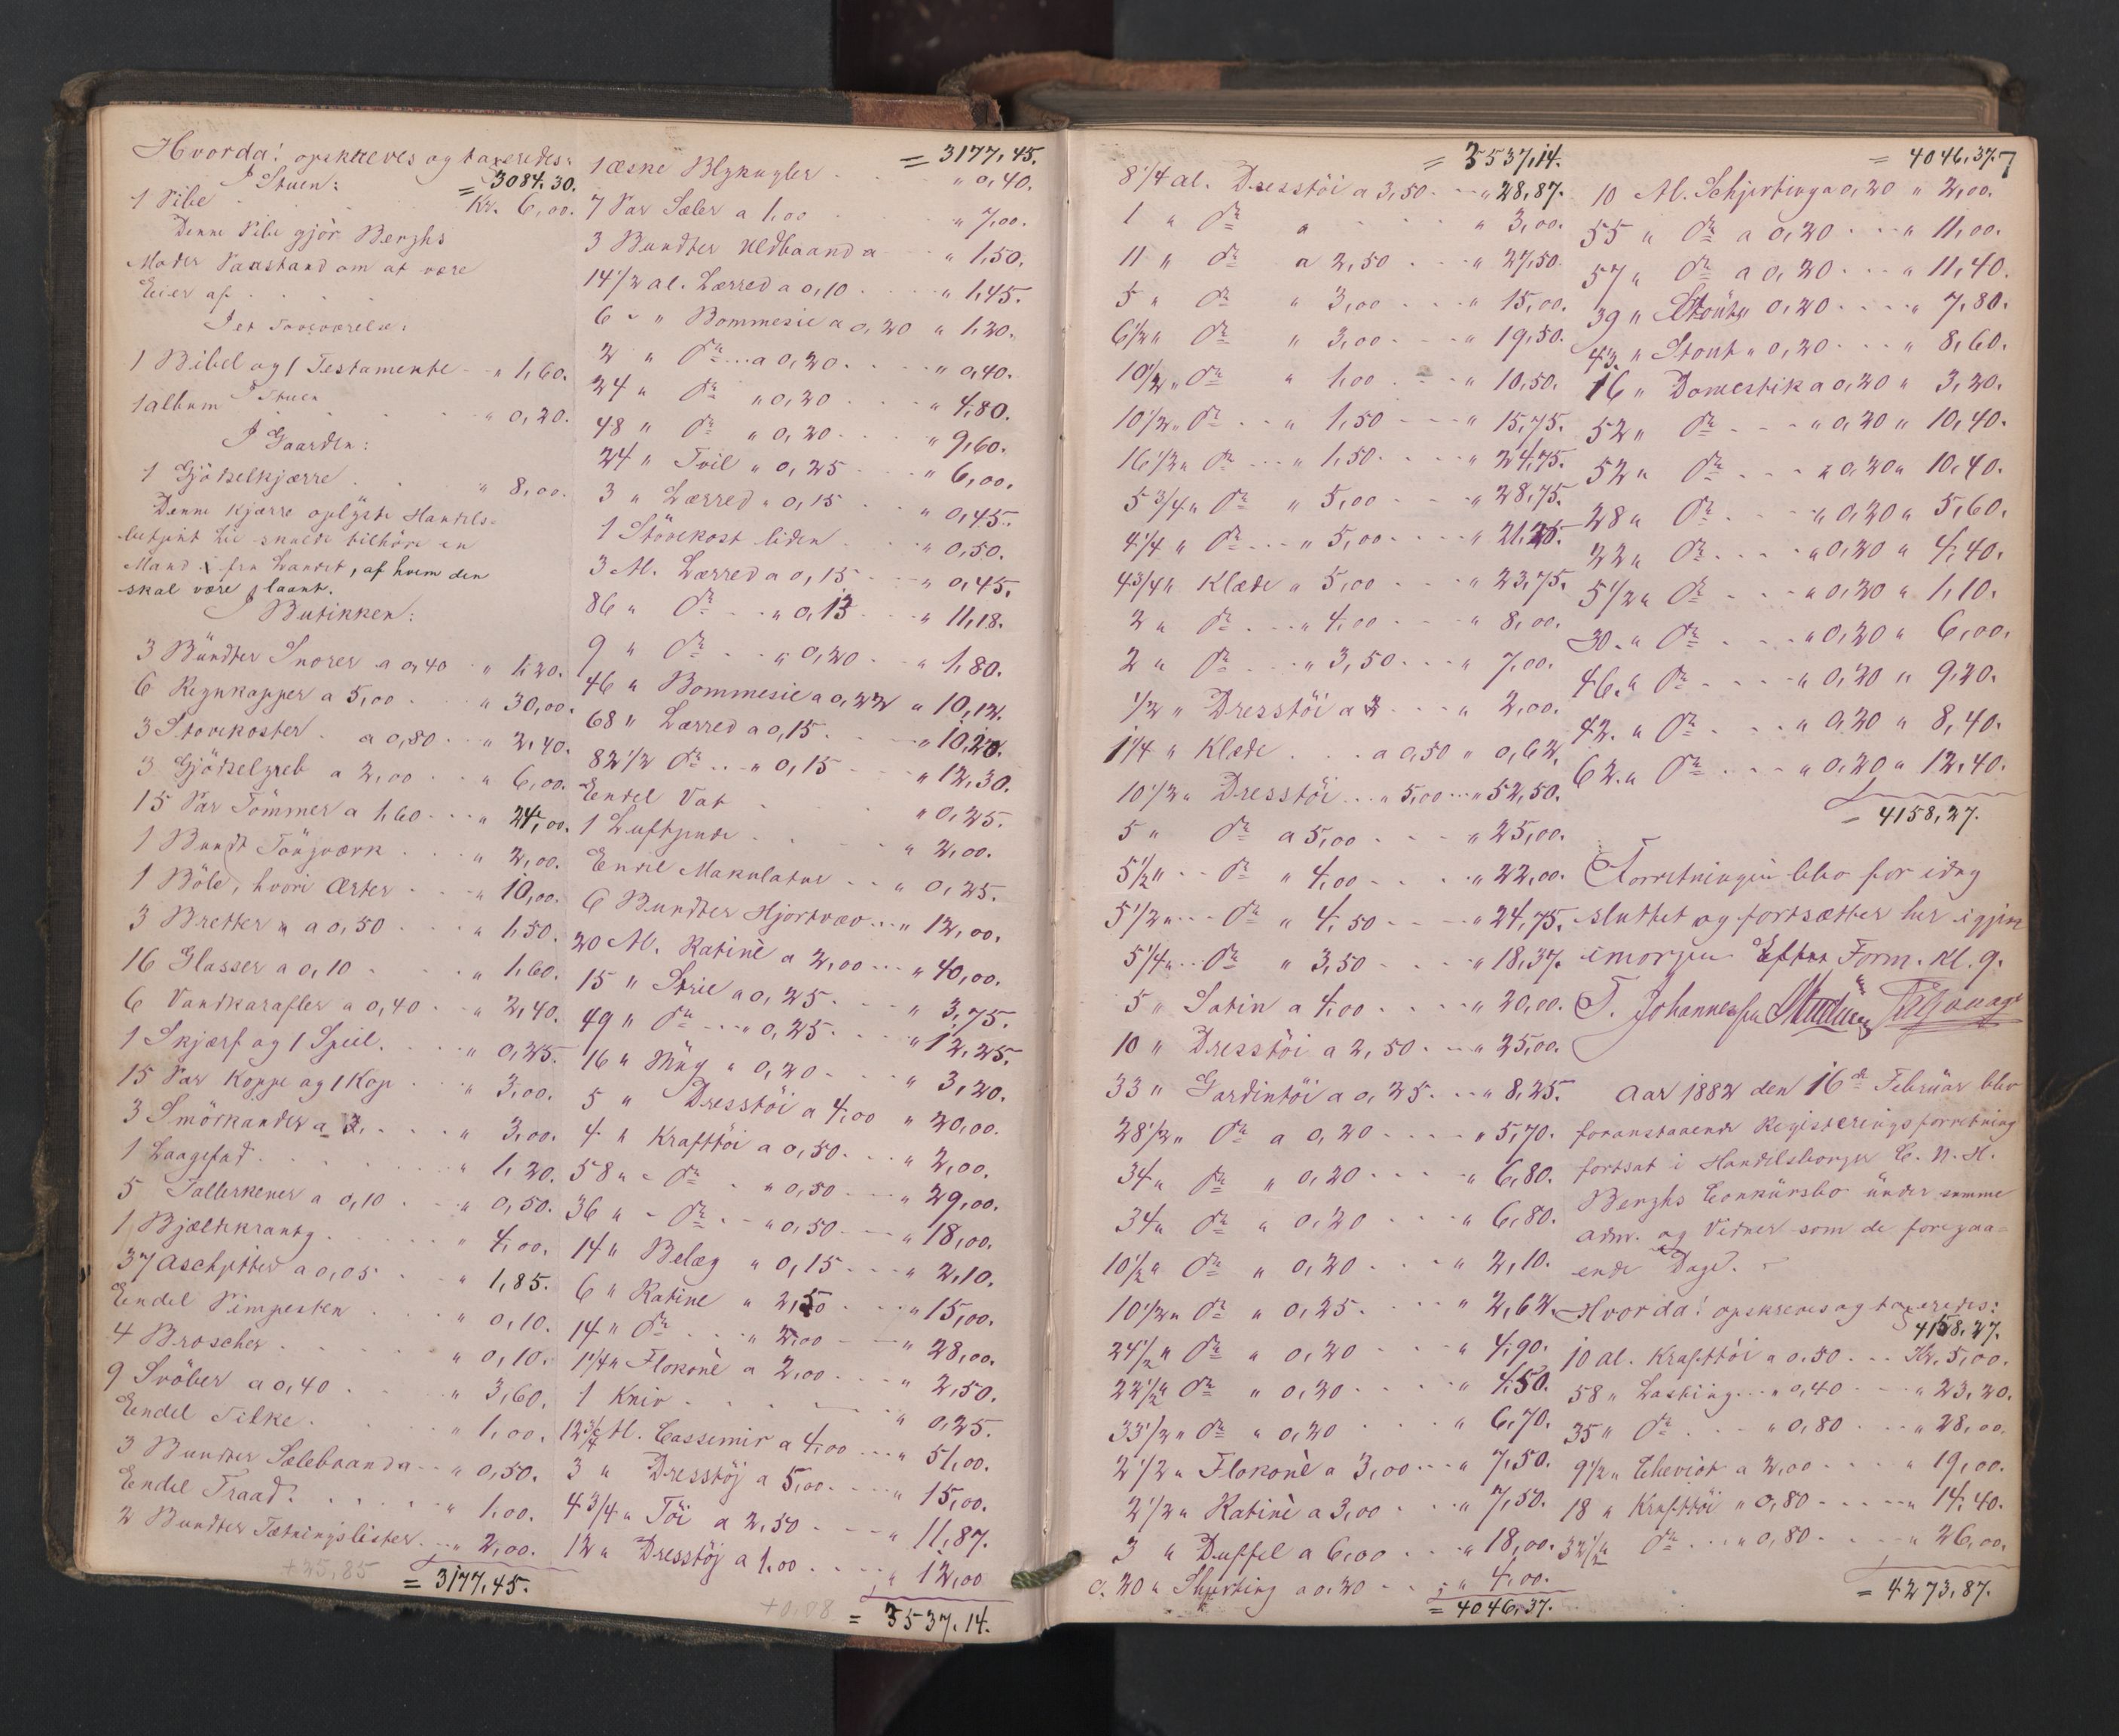 Hvorda! opskreves og taxeredes:
I Stuen: = 3084.30.
1 Pibe . . Kr. 6,00.
Denne Pibe gjör Berghs
Moder Paastand om at være
Eier af . . . .
I et Soveværelse:
1 Bibel og 1 Testamente - " 1,60.
I Stuen
1 album . . . . " 0,20.
I Gaarden:
1 Gjödselkjærre . . " 8,00.
Denne Kjærre oplyste Handels-
betjent Lie skulde tilhöre en
Mand i fra Landet, af hvem den
skal være laant.
I Butikken:
3 Bundter Snorer a 0,40 " 1,20.
6 Regnkapper a 5,00 . " 30,00.
3 Stovekoster . a 0,80 . " 2,40.
3 Gjödselgreb a 2,00 . . " 6,00.
15 Par Tömmer a 1,60 . . " 24,00.
1 Bundt Töugværk . . " 2,00.
1 Böle, hvori Ærter . . " 10,00.
3 Bretter " a 0,50 . . " 1,50.
16 Glasser a 0,10 . . " 1,60.
6 Vandkarafler a 0,40 . " 2,40.
1 Skjærf og 1 Speil . . " 0,25.
15 Par Koppe og 1 Kop . " 3,00.
3 Smörkander a . . " 3,00.
1 Laagefad . . . . " 1,20.
5 Tallerkener a 0,10 . . " 0,50.
1 Bjældekrants . . . " 4,00.
37 Aschjetter a 0,05 . . " 1,85.
Endel Pimpesten . . " 0,10.
4 Broscher . . . . " 0,10.
9 Svöber a 0,40 . . " 3,60.
Endel Silke . . . " 1,00.
3 Bundter Sælebaand a - " 0,50.
Endel Traad . . . . " 1,00.
2 Bundter Tætningslister . . " 2,00.
+25,85
= 3177,45.
= 3177,45.
1 æske Blykugler . . " 0,40.
7 Par Sæler a 1,00 . . " 7,00.
3 Bundter Uldbaand a . . " 1,50.
14 1/2 al. Lærred a 0,10 . . " 1,45.
6 - " Bommesie a 0,20 " 1,20.
2 " do . . a 0,20 . . . " 0,40.
24 " do " 0,20 . . . " 4,80.
48 " do " 0,20 . . . " 9,60.
24 " Tvil " 0,25 . . . " 6,00.
3 " Lærred " 0,15 . . . " 0,45.
1 Stövekost liden . . . " 0,50.
3 Al. Lærred a 0,15 . . " 0,45.
86 " do . . " 0,13 . . " 11,18.
9 " do . . " 0,20 . . " 1,80.
46 " Bommesie a 0,22 " 10,12.
68 " Lærred a 0,15 . . " 10,20.
82 1/2 do . . " 0,15 . . " 12,30.
Endel Vat . . " 0,25.
1 Luftpude . . . " 2,00.
Endel Makulatur . . " 0,25.
6 Bundter Hjortvæv . . " 12,00.
20 Al. Ratinè a 2,00 . . " 40,00.
15 " Strie a 0,25 . . . " 3,75.
49 " do . . " 0,25 . . " 12,25.
16 " " 0,20 . . " 3,20.
5 " Dresstöi a 4,00 " 20,00.
4 " Krafttöi a 0,50 . . " 2,00.
58 " - do . " 0,50 . . " 29,00.
36 " - do . - " 0,50 . . " 18,00.
14 " Belæg " 0,15 . . " 2,10.
6 " Ratine " 2,50 . . " 15,00.
14 " do . . . " 2,00 - . " 28,00.
1 1/4 " Flokonè a 2,00 . . " 2,50.
1 Kniv . . . . . . " 0,25.
12 3/4 Al. Cassemir a 4,00 . . " 51,00.
3 " Dresstöj a 5,00 . . " 15,00.
4 3/4 " Töi a 2,50 . . " 11,87.
12 " Dresstöj a 1,00 . . . " 12,00
+0,08 = 3537.14.
= 3537,14.
8 1/4 al. Dresstöi a 3,50 . - " 28,87.
1 " do " . . . " 3,00.
11 " do a 2,50 . . " 27,50.
5 " do " 3,00 . . " 15,00.
6 1/2 " do " 3,00 . . " 19,50.
10 1/2 " do " 1,00 . . " 10,50.
10 1/2 " do . . " 1,50 - - " 15,75.
16 1/2 " do . . . " 1,50 . . " 24,75.
5 3/4 " do " 5,00 . . " 28,75.
4 1/4 " do . . . " 5,00 . . " 21,25.
4 3/4 " Klæde " 5,00 . . " 23,75.
2 " do . . . " 4,00 . . " 8,00.
2 " do . . . " 3,50 . . " 7,00.
1/2 " Dresstöi a . . . " 2,00.
1 1/4 " Klæde . . . a 0,50 " 0,62.
10 1/2 " Dresstöi . . " 5,00 . . " 52,50.
5 " do a 5,00 . . " 25,00.
5 1/2 " . . do " 4,00 - . . " 22,00.
5 1/2 " . . do " 4,50 - - " 24,75.
5 1/4 " . . do " 3,50 . . " 18,37.
5 " Satin a 4,00 . . " 20,00.
10 " Dresstöi a 2,50 . - " 25,00.
33 " Gardintöi a 0,25 . . " 8,25.
28 1/2 " do a 0,20 - - " 5,70.
34 " do " 0,20 . . " 6,80.
34 " do " 0,20 . . " 6,80.
10 1/2 " do " 0,20 . . " 2,10.
10 1/2 " do " 0,25 . . " 2,62.
24 1/2 " do " 0,20 . . " 4,90.
22 1/2 " do " 0,20 . . " 4,50.
33 1/2 " do " 0,20 . . " 6,70.
2 1/2 " Flokonè a 3,00 . . " 7,50.
2 1/2 " Ratinè a 3,00 . . " 7,50.
3 " Duffel a 6,00 . . " 18,00.
c. 20 " Shjerting a 0,20 . . " 4,00.
= 4046,37.
= 4046,37.
10 Al. Schjerting a 0,20 " 2,00.
55 " do a 0,20 . . " 11,00.
57 " do a 0,20 . . " 11,40.
39 " Stout " 0,20 . . " 7,80.
43 " Stout " 0,20 . . " 8,60.
16 " Domestik a 0,20 " 3,20.
52 " do - - - " 0,20 " 10,40.
52 " do . - - " 0,20 " 10,40.
28 " do . . " 0,20 " 5,60.
22 " do . . . " 0,20 " 4,40.
5 1/2 " do - - - " 0,20 " 1,10.
30. " do . . . " 0,20 " 6,00.
46. " do - - - " 0,20 " 9,20.
42. " do . . . " 0,20 " 8,40.
62. " do . . - " 0,20 " 12,40.
= 4158,27.
Forretningen blev for idag
sluttet og fortsætter her igjen
imorgen Form. Kl. 9.
T. Johannessen
Aar 1882 den 16de Februar blev
foranstaaende Registeringsforretning
fortsat i Handelsborger C. N. H.
Berghs Conkursbo under samme
adm. og Vidner som de foregaa=
ende Dage. -
Hvorda! opskreves og taxeredes:
4158,27.
10 al. Krafttöi a 0,50 . . Kr. 5,00.
58 " Lasting . . " 0,40 . . " 23,20.
35 " do . . . " 0,80 . . " 28,00.
9 1/2 " Cheviot a 2,00 . . " 19,00.
18 " Krafttöi " 0,80 - - - " 14,40.
32 1/2 " do . . . " 0,80 . . " 26,00.
= 4273,87.